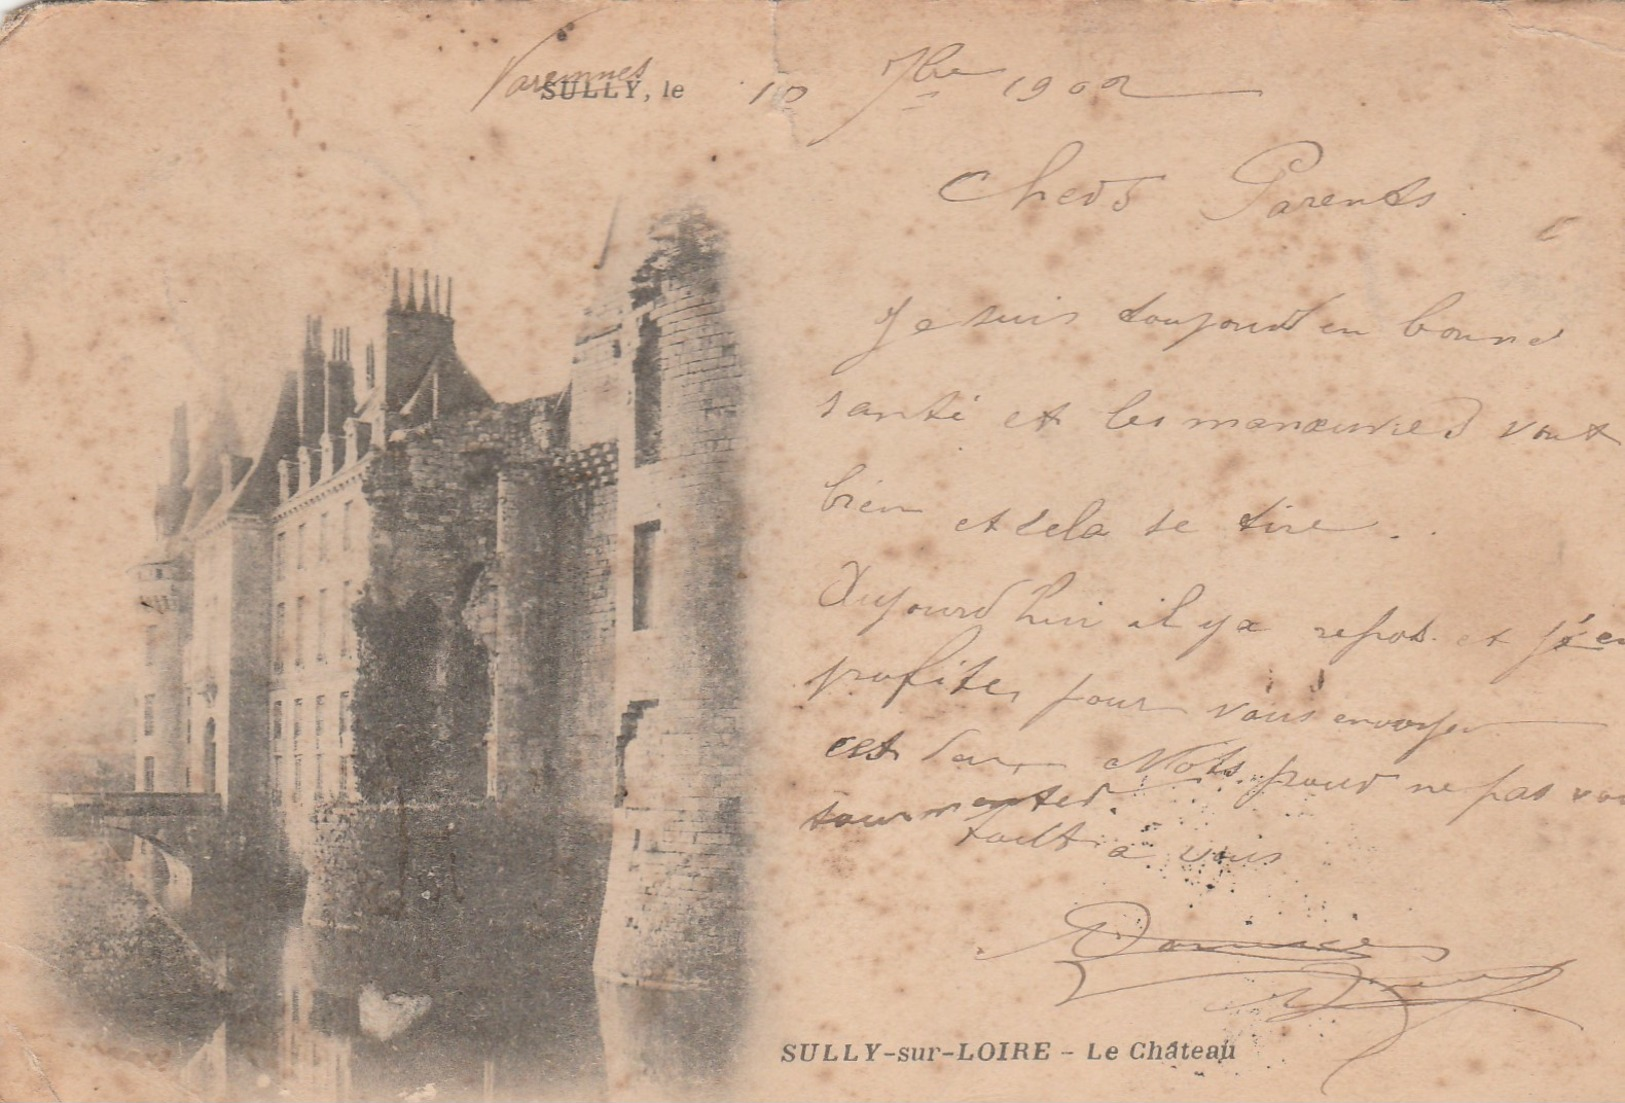 Varennes
SULLY, le 10 7bre 1902
Chers Parents
Je suis toujours en bonne
santé et les manœuvres vont
bien et cela se tire.
Aujourd hui il y a repos et j'en
profites pour vous envoyer
ces Mots pour ne pas vou
tourmenter.
tout a vous
SULLY-sur-LOIRE - Le Château